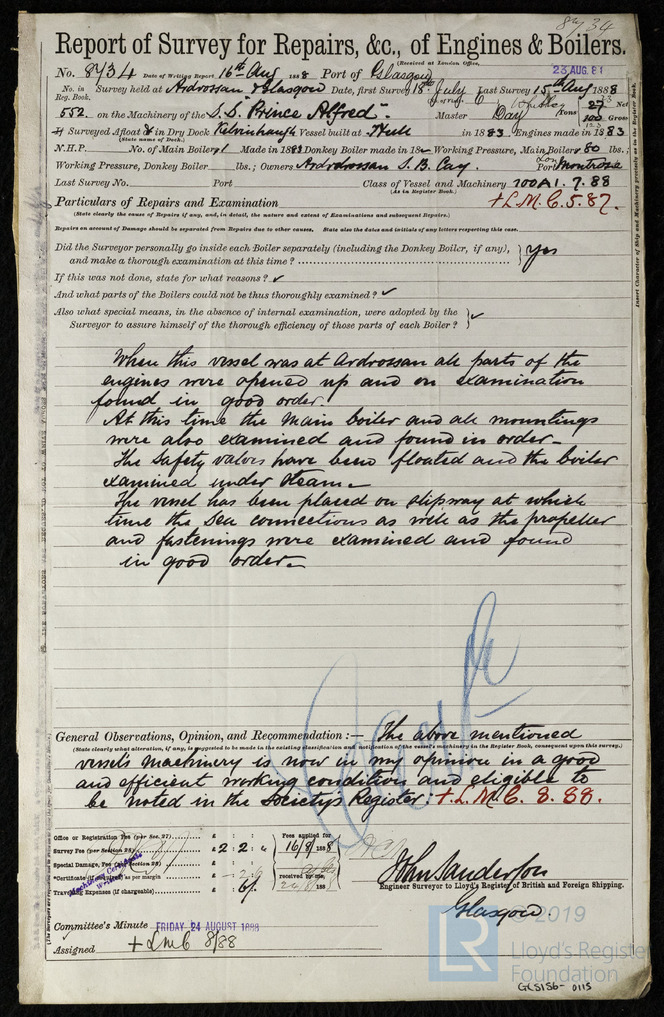 8734
Report of Survey for Repairs, &c., of Engines & Boilers.
(Received at London Office,
No. 8734 Date of Writing Report 16th Aug 1888 Port of Glasgow 23 AUG. 88
No. in Survey held at Ardrossan & Glasgow Date, first Survey 18th July Last Survey 15th Aug 1888
Reg. Book.
552. on the Machinery of the S.S. "Prince Alfred". Master Day Tons 27 Net 100 Gross
Surveyed Afloat & in Dry Dock Kelvinhaugh Vessel built at Hull in 1883 Engines made in 1883
(State name of Dock.)
N.H.P. No. of Main Boiler 1 Made in 1883 Donkey Boiler made in 18 Working Pressure, Main Boiler 80 lbs.;
Working Pressure, Donkey Boiler lbs.; Owners Ardrossan S.B. Coy. Port Montrose
Last Survey No. Port Class of Vessel and Machinery 100A1. 7.88
(As in Register Book.)
Particulars of Repairs and Examination +L.M.C. 5.87.
(State clearly the cause of Repairs if any, and, in detail, the nature and extent of Examinations and subsequent Repairs.)
Repairs on account of Damage should be separated from Repairs due to other causes. State also the dates and initials of any letters respecting this case.
Did the Surveyor personally go inside each Boiler separately (including the Donkey Boiler, if any), Yes
and make a thorough examination at this time?
If this was not done, state for what reasons? ✓
And what parts of the Boilers could not be thus thoroughly examined? ✓
Also what special means, in the absence of internal examination, were adopted by the
Surveyor to assure himself of the thorough efficiency of those parts of each Boiler? ✓
When this vessel was at Ardrossan all parts of the
engines were opened up and on examination
found in good order.
At this time the main boiler and all mountings
were also examined and found in order –
The safety valves have been floated and the boiler
examined under steam –
The vessel has been placed on slipway at which
time the sea connections as well as the propeller
and fastenings were examined and found
in good order –
General Observations, Opinion, and Recommendation :— The above mentioned
(State clearly what alteration, if any, is suggested to be made in the existing classification and notification of the vessel's machinery in the Register Book, consequent upon this survey.)
vessels machinery is now in my opinion in a good
and efficient working condition and eligible to
be noted in the Society's Register: +L.M.C. 8.88.
Office or Registration Fee (per Sec. 27) £ : :
Survey Fee (per Section 28) £ 2 : 2 :
Special Damage, Fee (per Section 28) £ : :
Certificate (if required) as per margin
Travelling Expenses (if chargeable) £
Fees applied for
16/8/1888
received by me,
188
John Sanderson
Engineer Surveyor to Lloyd's Register of British and Foreign Shipping.
Glasgow.
Committee's Minute FRIDAY 24 AUGUST 1888
Assigned + LMC 8/88
LR © 2019
Lloyd's Register
Foundation
GLS156-0115
Insert Character of Ship and Machinery precisely as in the Register Book.